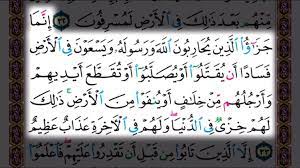 مِّنْهُم بَعْدَ ذَٰلِكَ فِي ٱلْأَرْضِ لَمُسْرِفُونَ ٣٢ إِنَّمَا
جَزَٰٓؤُا۟ ٱلَّذِينَ يُحَارِبُونَ ٱللَّهَ وَرَسُولَهُۥ وَيَسْعَوْنَ فِي ٱلْأَرْضِ
فَسَادًا أَن يُقَتَّلُوٓا۟ أَوْ يُصَلَّبُوٓا۟ أَوْ تُقَطَّعَ أَيْدِيهِمْ
وَأَرْجُلُهُم مِّنْ خِلَٰفٍ أَوْ يُنفَوْا۟ مِنَ ٱلْأَرْضِ ۚ ذَٰلِكَ
لَهُمْ خِزْيٌ فِي ٱلدُّنْيَا ۖ وَلَهُمْ فِي ٱلْآخِرَةِ عَذَابٌ عَظِيمٌ
٣٣ إِلَّا ٱلَّذِينَ تَابُوا۟ مِن قَبْلِ أَن تَقْدِرُوا۟ عَلَيْهِمْ ۖ فَٱعْلَمُوٓا۟